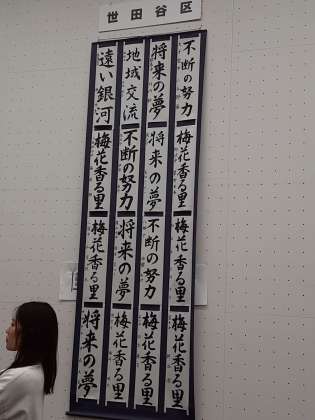 世田谷区
不断の努力
梅花香る里
梅花香る里
梅花香る里
将来の夢
将来の夢
不断の努力
梅花香る里
地域交流
不断の努力
将来の夢
梅花香る里
遠い銀河
梅花香る里
梅花香る里
将来の夢